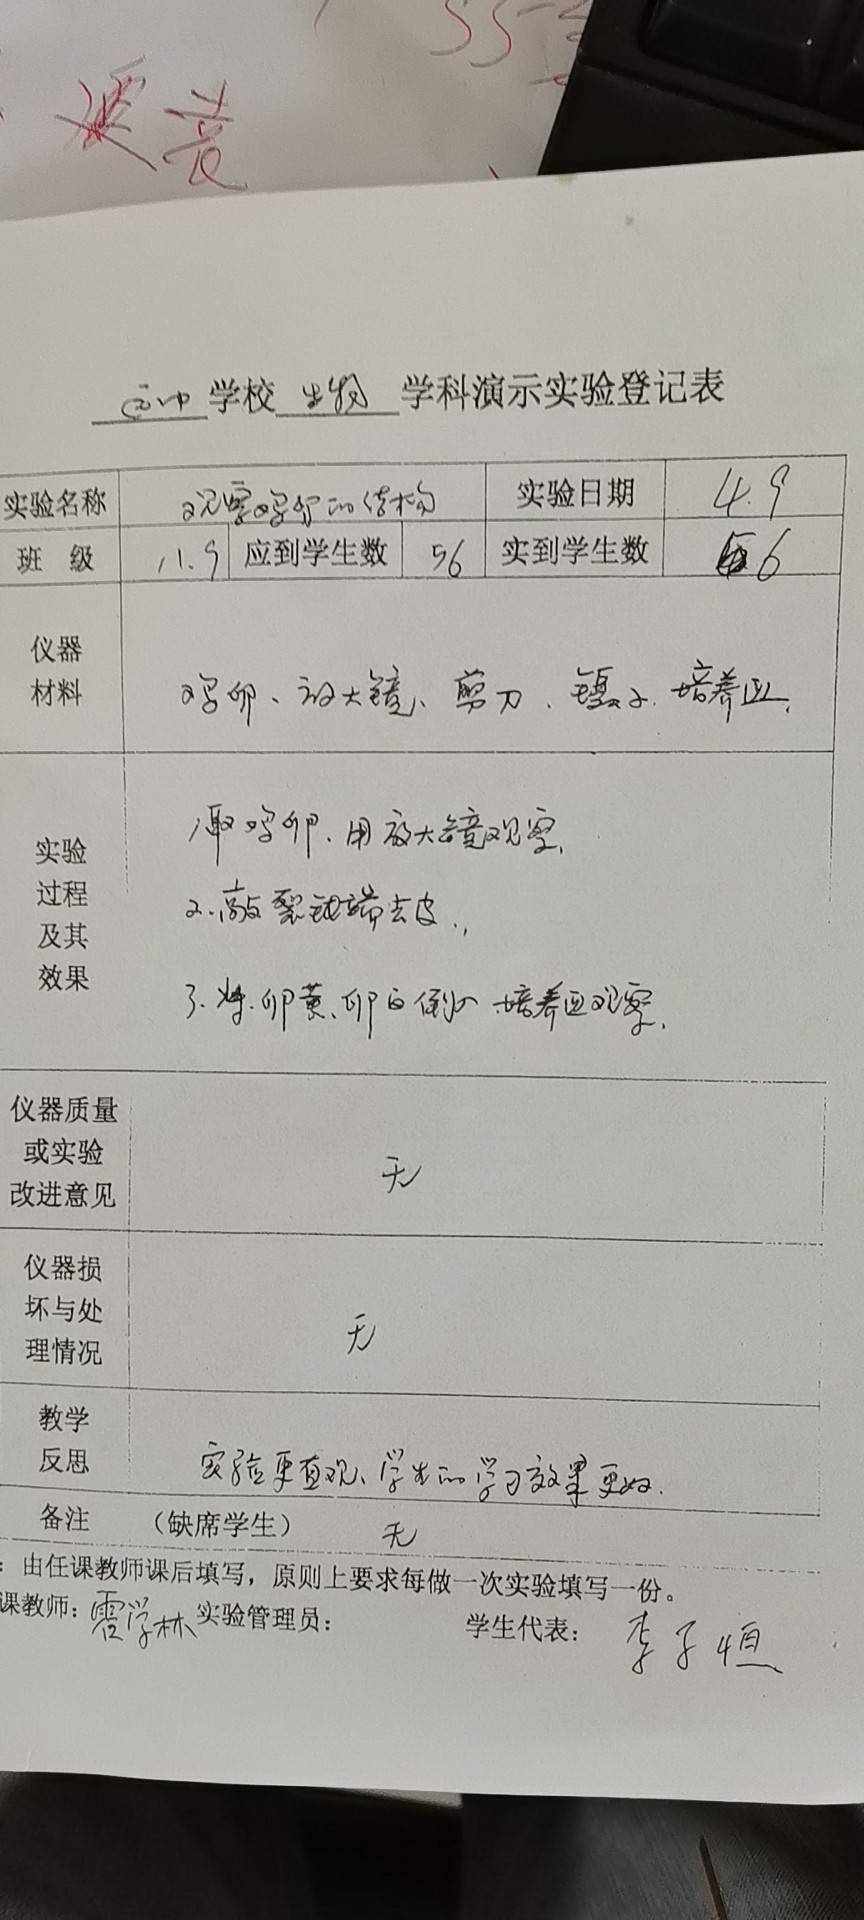 学校 生物 学科演示实验登记表
实验名称 观察鸡卵的结构 实验日期 4.9
班 级 11.9 应到学生数 56 实到学生数 56
仪器
材料
鸡卵、放大镜、剪刀、镊子、培养皿、
实验
过程
及其
效果
1取鸡卵、用放大镜观察、
2.敲裂钝端去皮、
3.将卵黄、卵白倒入培养皿观察、
仪器质量
或实验
改进意见
无
仪器损
坏与处
理情况
无
教学
反思
实验更直观、学生的学习效果更好.
备注 （缺席学生） 无
：由任课教师课后填写，原则上要求每做一次实验填写一份。
课教师: 霍学林 实验管理员: 学生代表: 李子恒